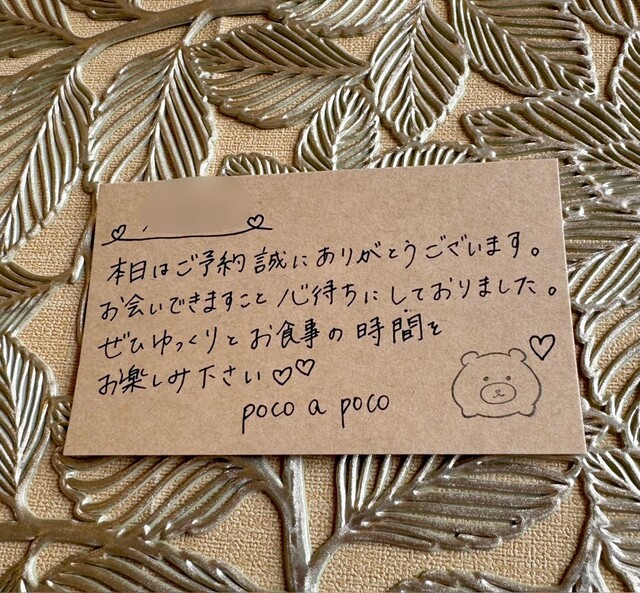 本日はご予約誠にありがとうございます。
お会いできますこと心待ちにしておりました。
ぜひゆっくりとお食事の時間を
お楽しみ下さい♡♡
poco a poco